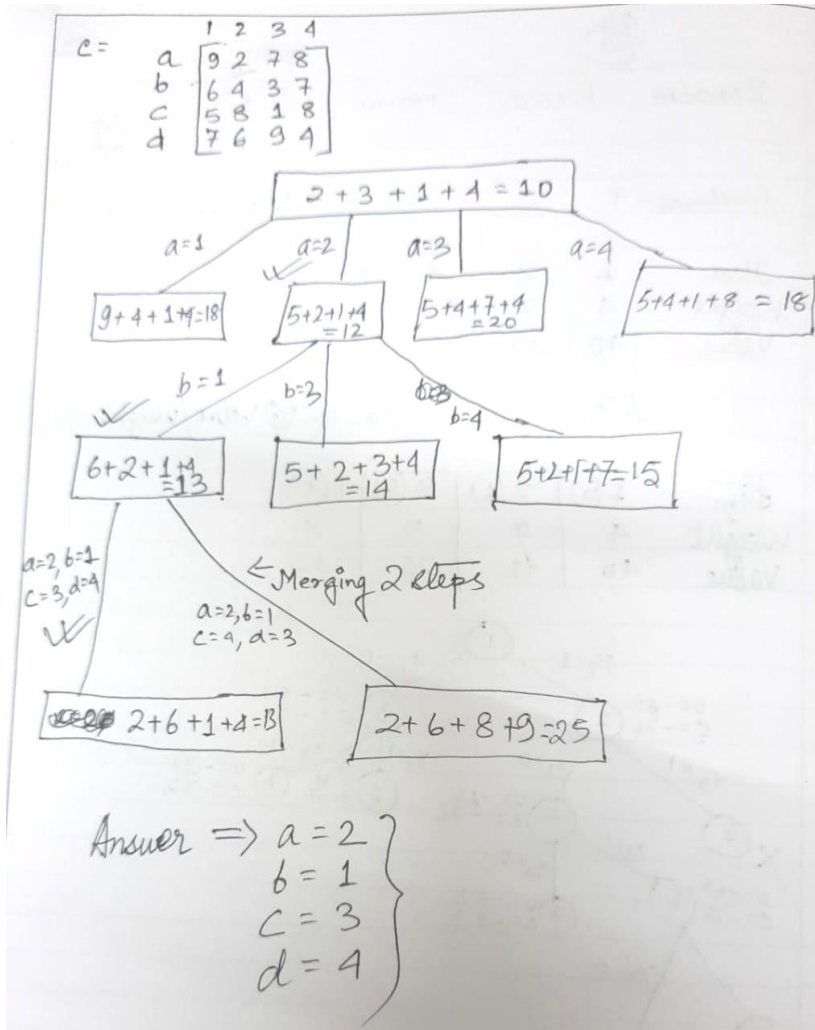 1 2 3 4
c=
a 9 2 7 8
b 6 4 3 7
c 5 8 1 8
d 7 6 9 4
2 + 3 + 1 + 4 = 10
a=1 a=2 a=3 a=4
9+4+1+4=18
5+2+1+4
=12
5+4+7+4
=20
5+4+1+8 = 18
b=1 b=3 b=4
6+2+1+4
=13
5+ 2+3+4
=14
5+2+1+7=15
a=2, b=1
c=3, d=4
← Merging 2 steps
a=2, b=1
c=4, d=3
2+6+1+4=13
2+6+8+9=25
Answer => a = 2
b = 1
c = 3
d = 4